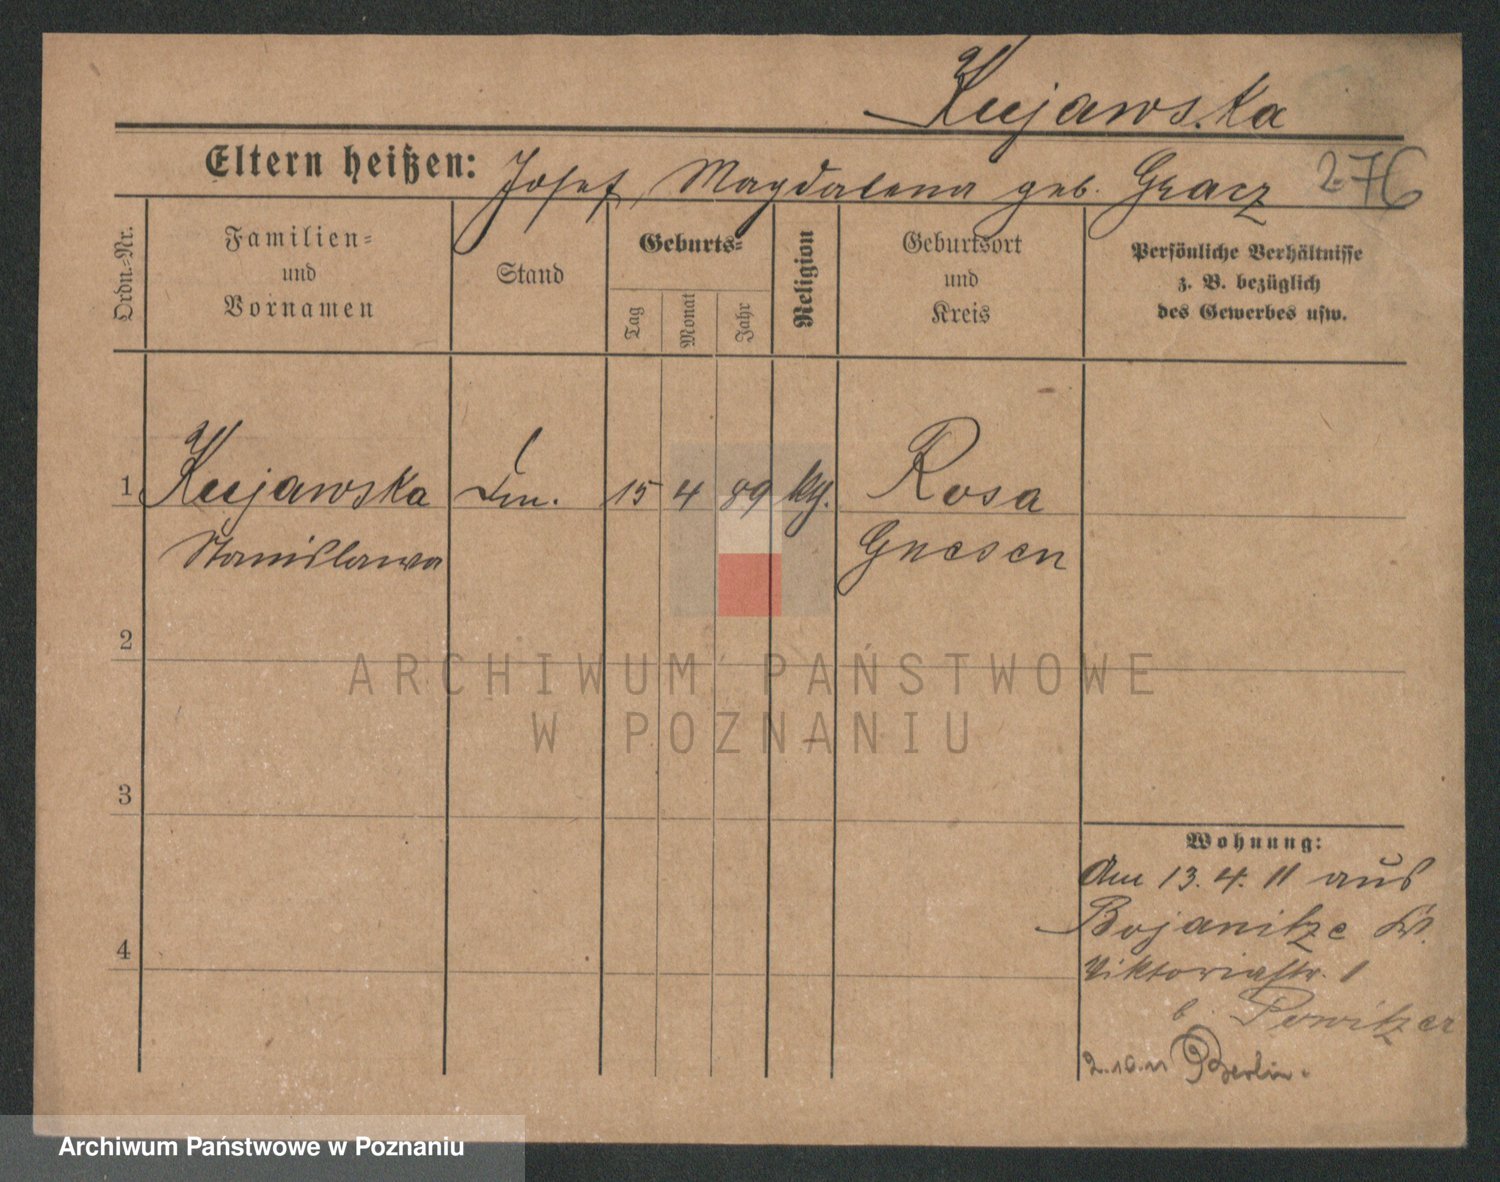 Kujawska
Eltern heißen: Josef, Magdalena geb. Gracz 276
Ordn.-Nr.
Familien-
und
Vornamen
Stand
Geburts-
Tag
Monat
Jahr
Religion
Geburtsort
und
Kreis
Persönliche Verhältnisse
z. B. bezüglich
des Gewerbes usw.
1 Kujawska 15 4 89 kth. Rosa
Stanislawa Gnesen
2
3
4
Wohnung:
Am 13.4.11 aus
Bojanitze
Viktoriastr. 1
b. Powitzer
2.10.11 Berlin.
ARCHIWUM PAŃSTWOWE
W POZNANIU
Archiwum Państwowe w Poznaniu